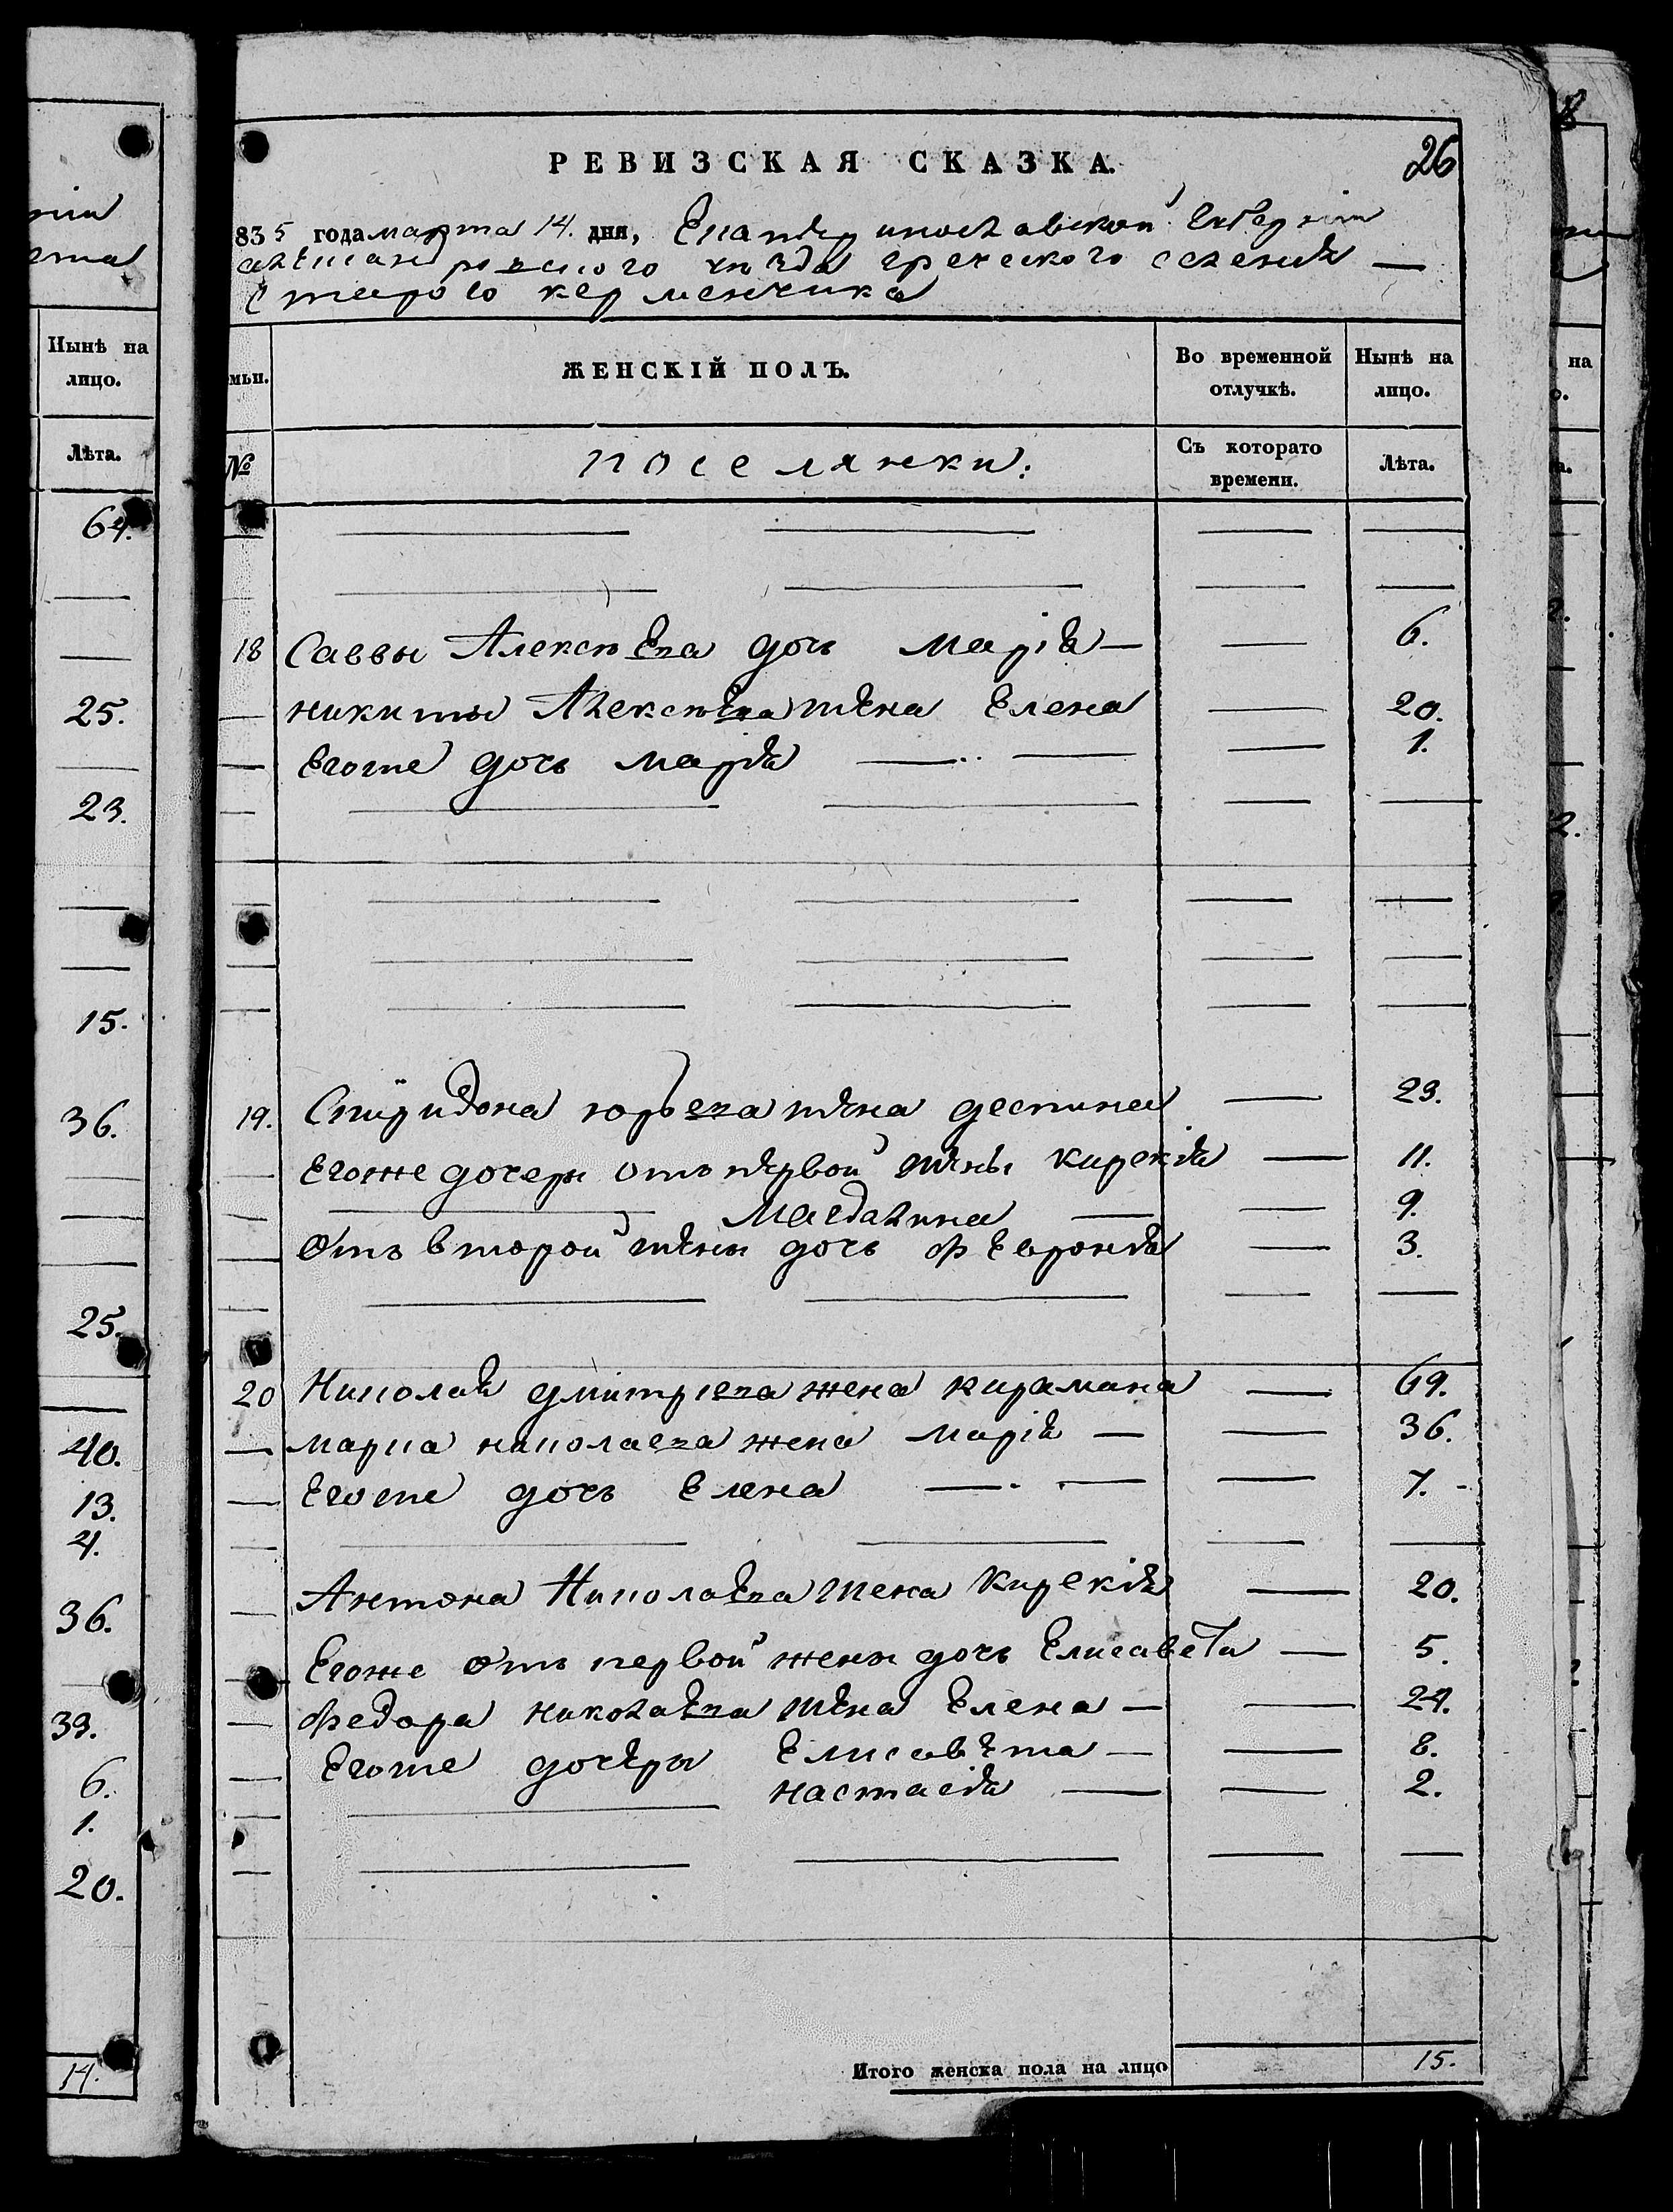 нія
Нынѣ на
лицо.
Лѣта.
64.
25.
23.
15.
36.
25.
40.
13.
4.
36.
33.
6.
1.
20.
14.
РЕВИЗСКАЯ СКАЗКА. 26
835 года марта 14. дня, Екатериославской Губерніи
александровского уезда греческого селения
Старого керменчика
мьи. ЖЕНСКІЙ ПОЛЪ. Во временной отлучкѣ. Нынѣ на лицо.
№ поселянки: Съ которато времени. Лѣта.
18 Саввы Алексѣева дочь Марія — 6.
никиты Алексѣева жена Елена — 20.
Егоже дочь Марія — 1.
19. Спиридона юрьева жена деспина — 23.
Егоже дочери отъ первой жены Кирекія — 11.
Магдалина — 9.
Отъ второй жены дочь Февронія — 3.
20 Николая дмитриева жена кирамана — 69.
марка николаева жена Марія — 36.
Егоже дочь Елена — 7.
Антона Николаева жена Кирекія — 20.
Егоже отъ первой жены дочь Елисавета — 5.
Федора николаева жена Елена — 24.
Егоже дочери Елисавета — 8.
настасія — 2.
Итого женска пола на лицо 15.
на